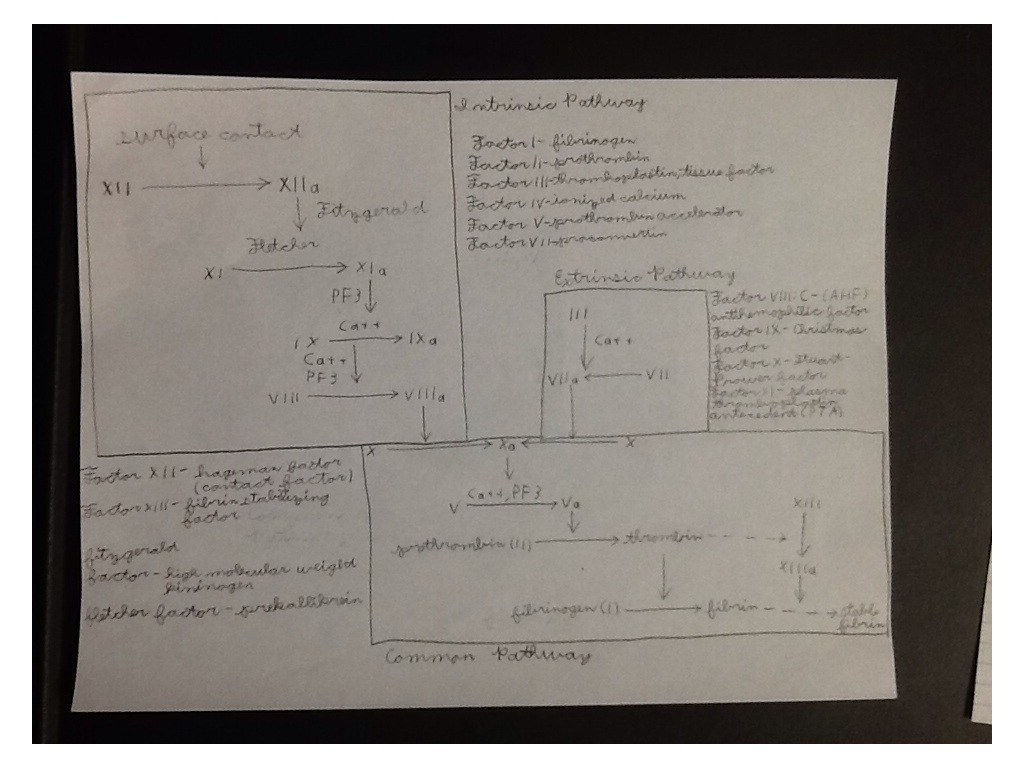 Intrinsic Pathway
surface contact
XII
XIIa
Fitzgerald
Fletcher
XI
XIa
PF3
Ca++
IX
IXa
Ca++
PF3
VIII
VIIIa
Factor I- fibrinogen
Factor II-prothrombin
Factor III-thromboplastin, tissue factor
Factor IV-ionized calcium
Factor V-prothrombin accelerator
Factor VII-proconvertin
Extrinsic Pathway
III
Ca++
VIIa
VII
Factor VIII:C-(AHF)
antihemophilic factor
Factor IX- Christmas
factor
Factor X-Stuart-
Prower factor
Factor XI-plasma
thromboplastin
antecedent (PTA)
X
Xa
X
Ca++, PF3
V
Va
XIII
prothrombin (II)
thrombin
XIIIa
fibrinogen (I)
fibrin
stable
fibrin
Common Pathway
Factor XII- hageman factor
(contact factor)
Factor XIII- fibrin stabilizing
factor
fitzgerald
factor-high molecular weight
kininogen
fletcher factor-prekallikrein